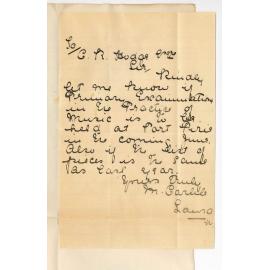 To/ C. R. Hodge Esq
Sir
Kindly
let me know if
Primary Examination
in the Practice of
Music is to be
held at Port Pirie
in the coming June
Also if the list of
pieces is the same
as last year.
Yours truly
M.
Laura